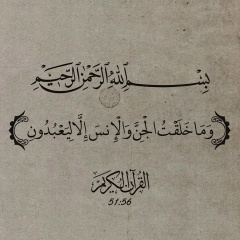 بِسْمِ اللهِ الرَّحْمٰنِ الرَّحِيْمِ
وَمَا خَلَقْتُ الْجِنَّ وَالْإِنسَ إِلَّا لِيَعْبُدُونِ
القرآن الكريم
51:56